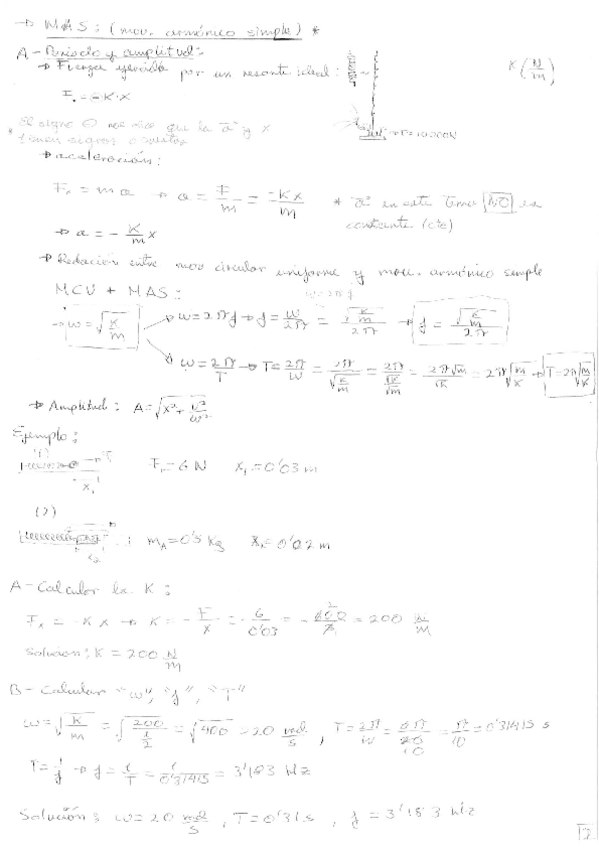 → M.A.S: (mov. armónico simple) *
A- Periodo y amplitud:
→ Fuerza ejercida por un resorte ideal:
K (N/m)
Fₓ = -K·X
El signo ⊖ nos dice que la a⃗ y x
tienen signos
→ aceleración:
Fₓ = m a → a = F/m = -Kx/m
* a⃗ en este tema NO es
constante (cte)
→ a = - K/m x
→ Relación entre mov circular uniforme y mov. armónico simple
MCU + MAS:
w=2πf
→ w=√(K/m)
→ w=2πf → f = w/2π = √(K/m)/2π → f = √(K/m)/2π
w = 2π/T → T = 2π/w = 2π/√(K/m) = 2π/(√K/√m) = 2π√m/√K = 2π√(m/K) → T=2π√(m/K)
→ Amplitud: A=√(x²+v²/w²)
Ejemplo:
(1)
X₁
F₁=6N X₁=0'03 m
(2)
: m_A=0'5 Kg X₂=0'02 m
A- Calcular la K:
Fₓ = -Kx → K = - F/x = - 6/0'03 = 200 N/m
Solución: K = 200 N/m
B- Calcular "w", "f", "T"
w=√(K/m) = √(200/(1/2)) = √400 = 20 rad/s , T=2π/w = π/10 = 0'31415 s
T=1/f → f = 1/T = 1/0'31415 = 3'183 Hz
Solución: w=20 rad/s , T=0'31s , f = 3'183 Hz